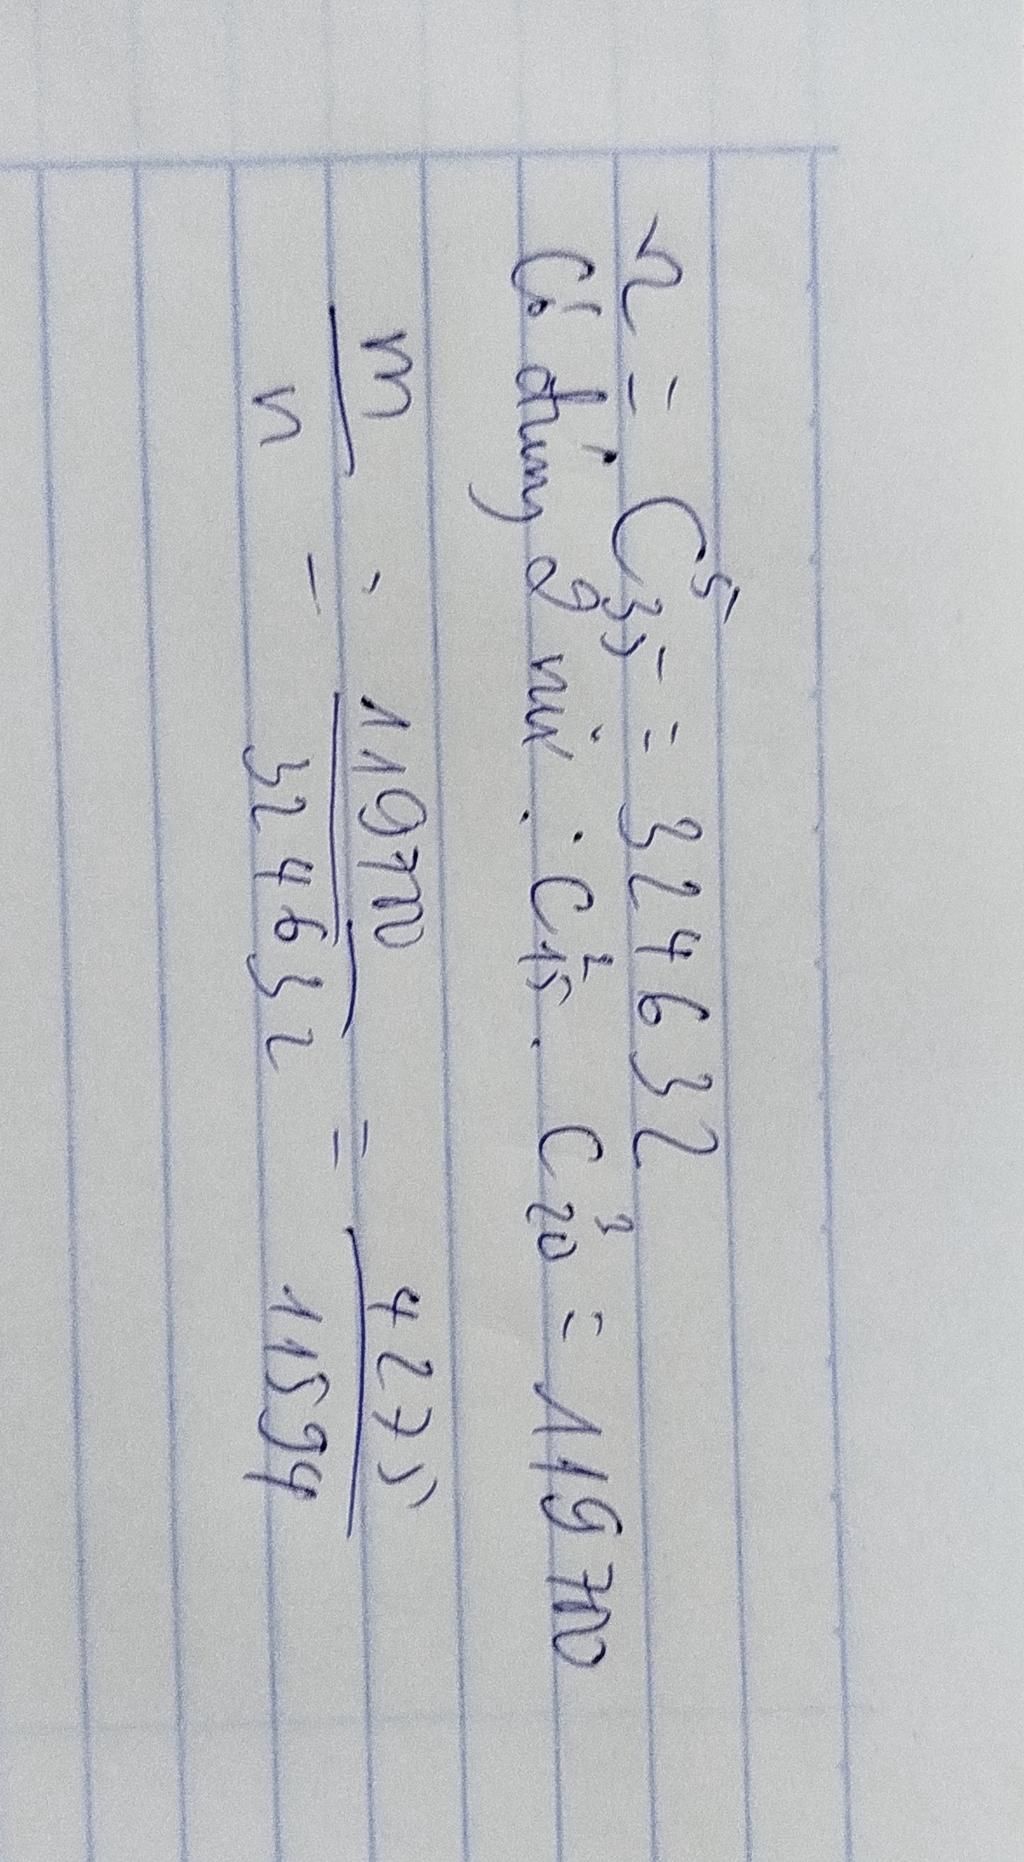 n = C⁵₃₅ = 324632
Có đúng 2 nữ : C²₁₅ . C³₂₀ = 119700
m/n = 119700/324632 = 4275/11594